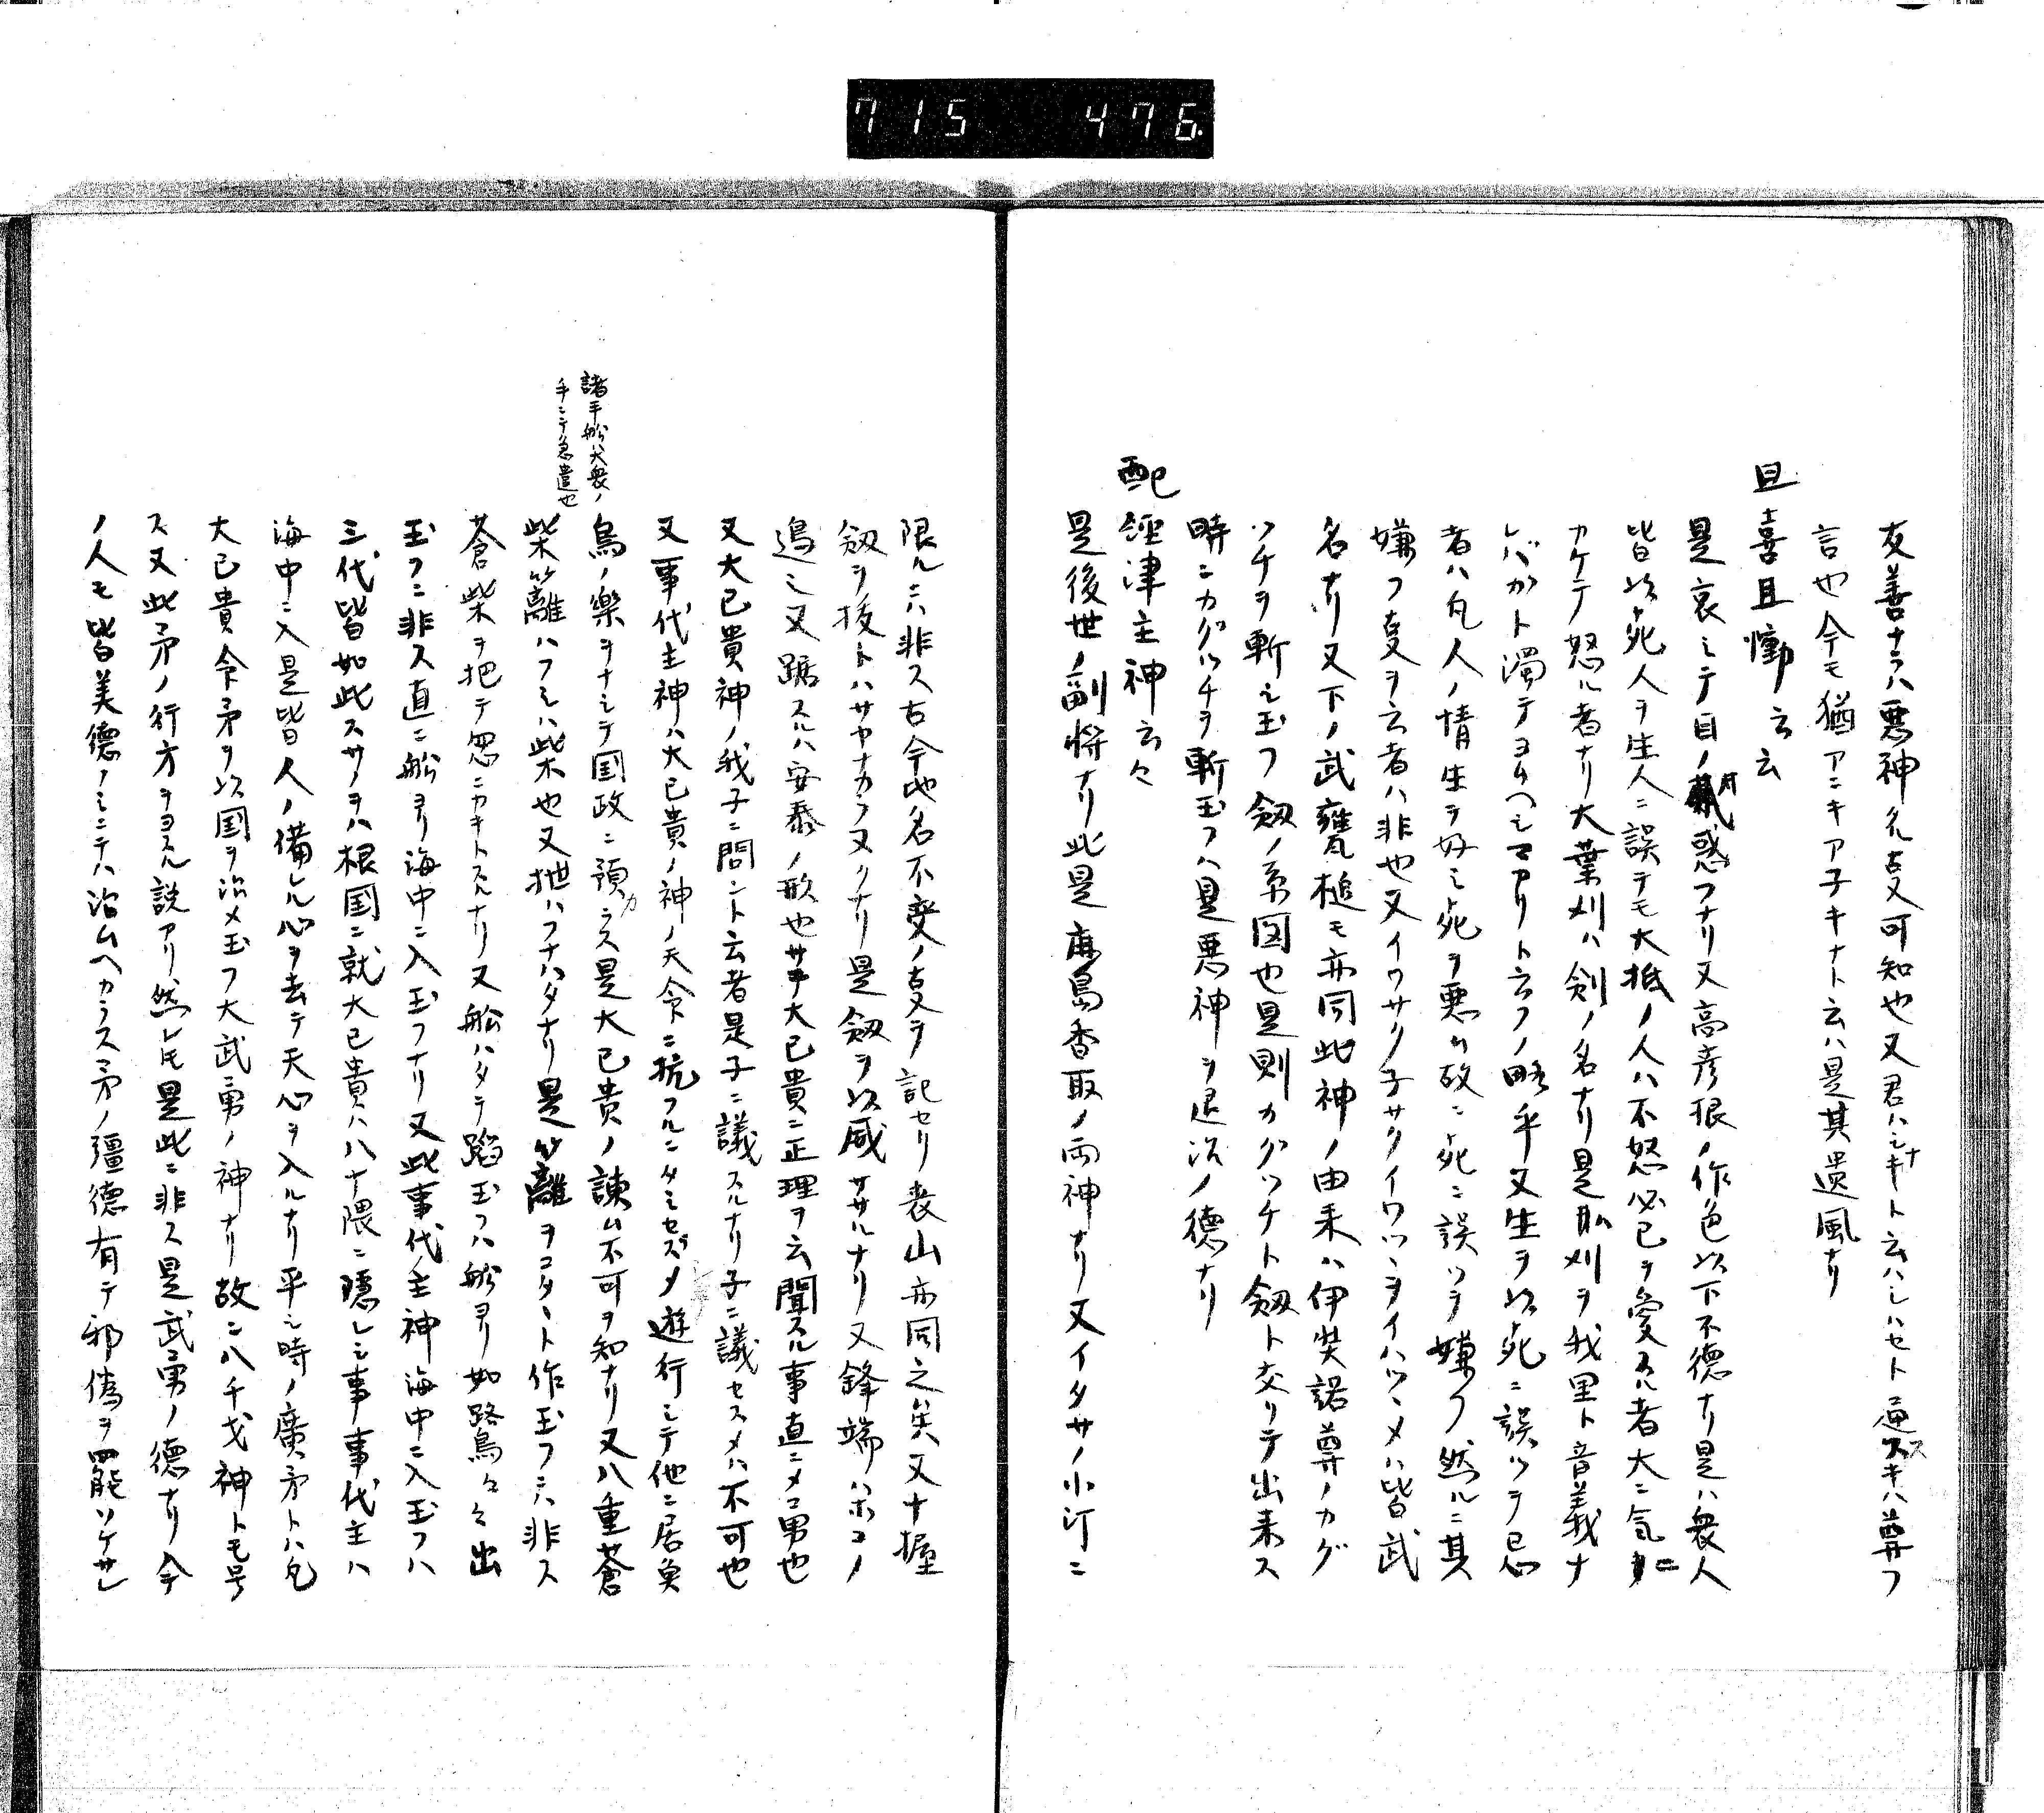 715 476
友善ナラハ悪神タル古又可知也又君ハシナキト云ハシハセト通ススキハ尊フ
言也今モ猶アニキアネキナト云ハ是其遺風ナリ
且喜且慟云云
是哀シテ目ノ惑フナリ又高彦根ノ作色以下不徳ナリ是ハ衆人
皆以死人ヲ生人ニ誤テモ大抵ノ人ハ不怒必已ヲ愛スル者大ニ気ニ
カケテ怒ル者ナリ大葉刈ハ剣ノ名ナリ是私刈ヲ我里ト音義ナ
レバガト濁テヨムヘシマアリト云フノ略乎又生ヲ以死ニ誤ツテ忌
者ハ凡人ノ情生ヲ好ミ死ヲ悪ム故ニ死ニ誤ツテ嫌フ然ルニ其
嫌フ支ヲ云者ハ非也又イワサクネサクイワツヽヲイハツヽメハ皆武
名ナリ又下ノ武甕槌モ亦同此神ノ由来ハ伊奘諾尊ノカグ
ツチヲ斬シ玉フ剱ノ系図也是則カグツチト剱ト交リテ出来ス
時ニカグツチヲ斬玉フハ是悪神ヲ退治ノ徳ナリ
配經津主神云々
是後世ノ副将ナリ此是鹿島香取ノ両神ナリ又イタサノ小汀ニ
限ルニハ非ス古今地名不変ノ古又ヲ記セリ喪山亦同之矣又十握
剱ヲ抜トハサヤナカラヌクナリ是剱ヲ以威ササルナリ又鋒端ハホコノ
過シ又踞スルハ安泰ノ形也サテ大已貴ニ正理ヲ云聞スル事直ニメコ勇也
又大已貴神ノ我子ニ問ント云者是子ニ議スルナリ子ニ議セスメハ不可也
又事代主神ハ大已貴ノ神ノ天命ニ抗フルニタミセズメ遊行シテ他ニ居魚
諸手船ハ大衆ノ
手ニテ急遣也
鳥ノ樂ヲナシテ国政ニ預カラス是大已貴ノ諌ム不可ヲ知ナリ又八重蒼
柴籬ハフシハ柴也又抴ハフナハタナリ是籬ヲコタート作玉フニハ非ス
蒼柴ヲ把テ忽ニカキトスルナリ又船ハタテ蹈玉フハ船ヨリ如路鳥々々出
玉フニ非ス直ニ船ヨリ海中ニ入玉フナリ又此事代主神海中ニ入玉フハ
三代皆如此スサノヲハ根国ニ就大已貴ハ八十隈ニ隠レシ事事代主ハ
海中ニ入是皆人ノ備レル心ヲ去テ天心ヲ入ルナリ平シ時ノ廣矛トハ凡
大已貴命矛ヲ以国ヲ治メ玉フ大武勇ノ神ナリ故ニ八千戈神トモ号
ス又此矛ノ行方ヲヨスル説アリ然レトモ是此ニ非ス是武勇ノ徳ナリ今
ノ人モ皆美徳ノミニテハ治ムヘカラス矛ノ彊徳有テ邪偽ヲ罷ツケサレ